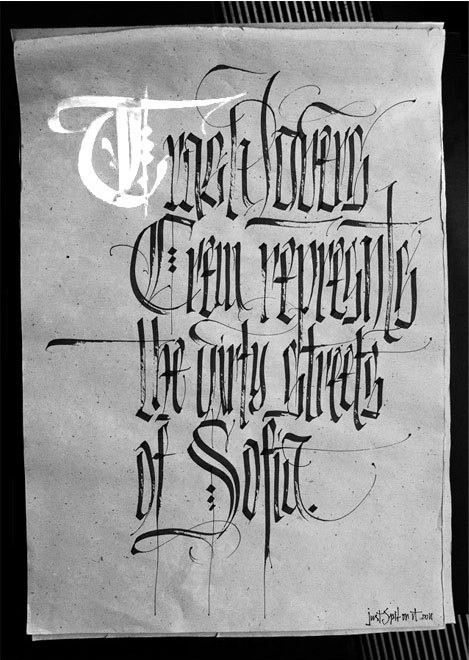 Trash lovers
Crew represents
the dirty streets
of Sofia.
just spit on it 2011